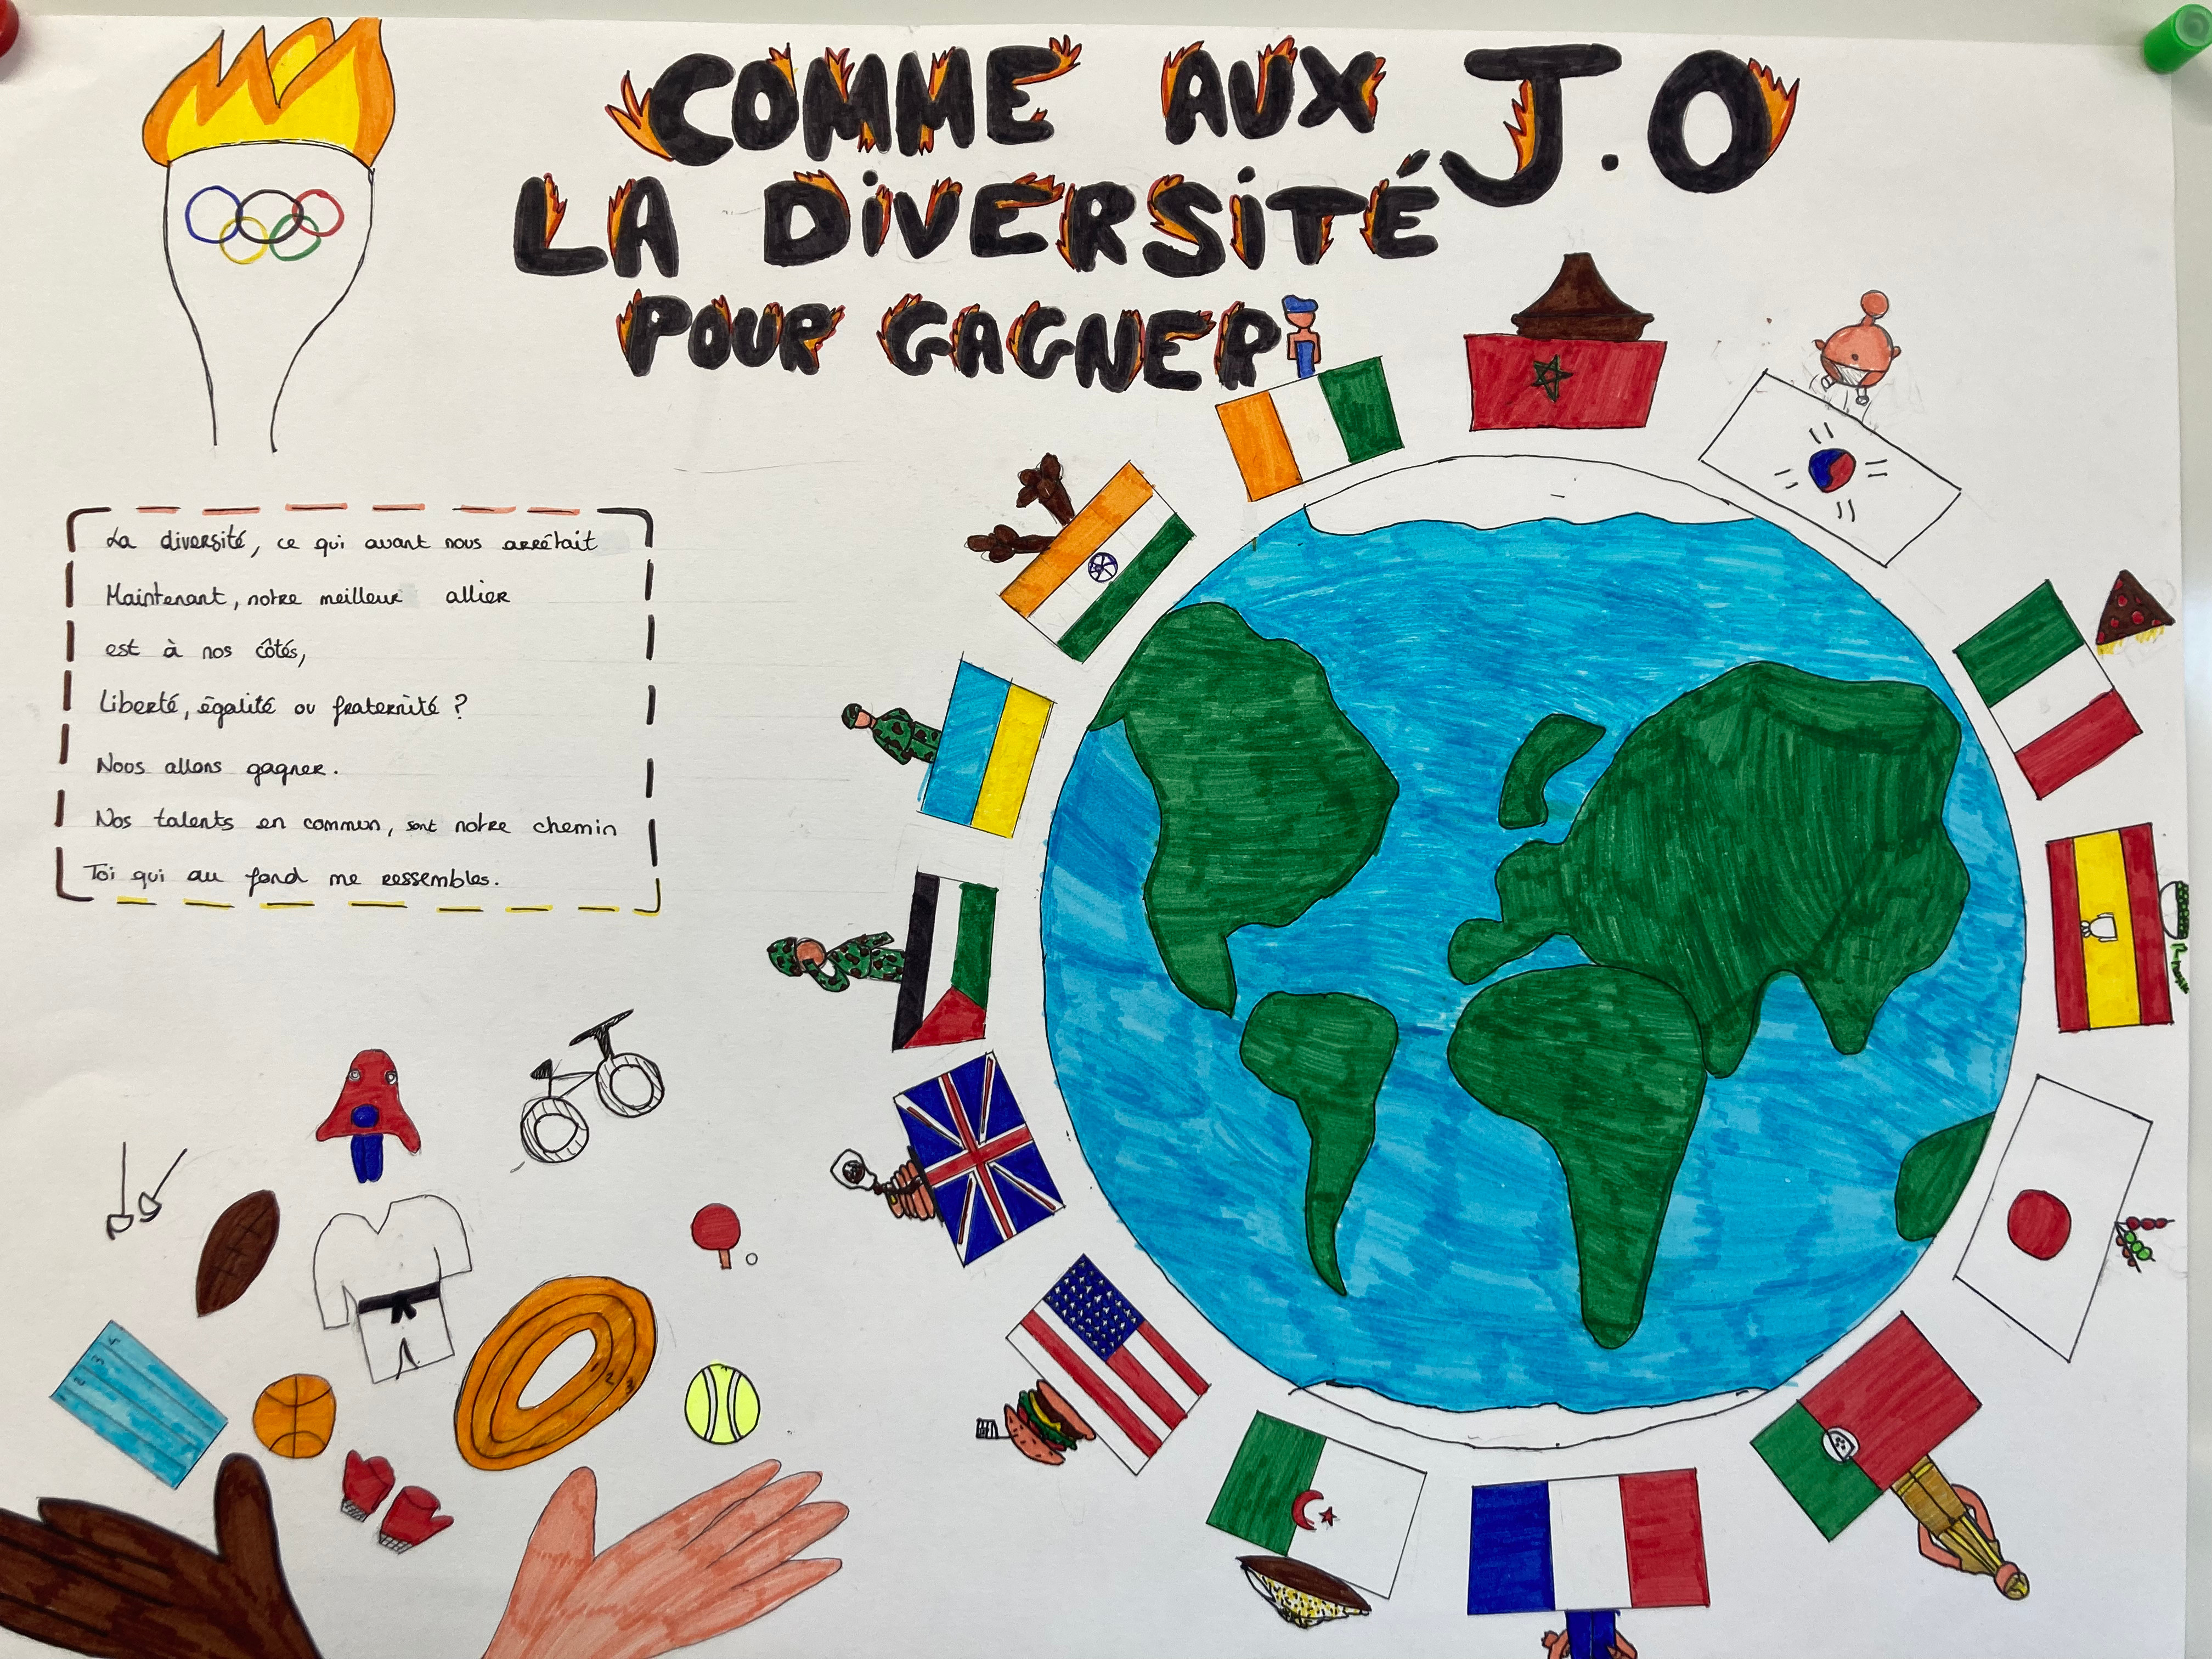 COMME AUX J.O
LA DIVERSITÉ
POUR GAGNER
La diversité, ce qui avant nous arrêtait
Maintenant, notre meilleur allier
est à nos côtés,
Liberté, égalité ou fraternité ?
Nous allons gagner.
Nos talents en commun, sont notre chemin
Toi qui au fond me ressembles.